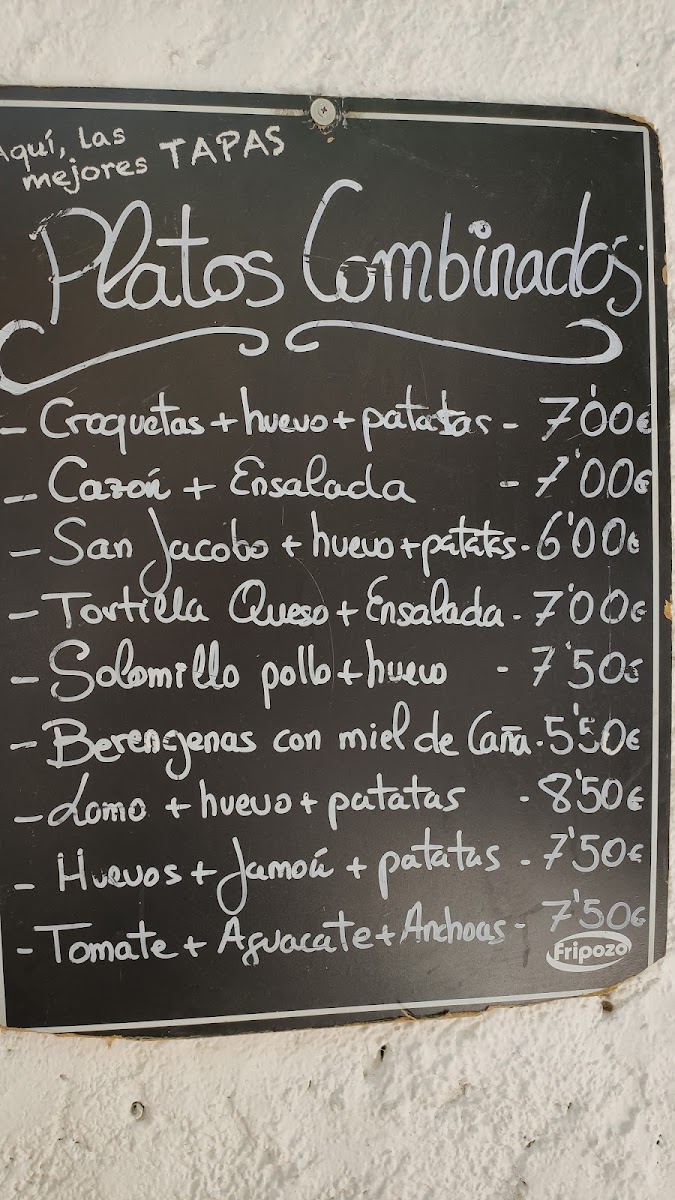 Aquí, las
mejores TAPAS
Platos Combinados
- Croquetas + huevo + patatas - 7'00€
- Cazón + Ensalada - 7'00€
- San Jacobo + huevo + patatas - 6'00€
- Tortilla Queso + Ensalada - 7'00€
- Solomillo pollo + huevo - 7'50€
- Berengenas con miel de Caña - 5'50€
- Lomo + huevo + patatas - 8'50€
- Huevos + Jamón + patatas - 7'50€
- Tomate + Aguacate + Anchoas - 7'50€
Fripozo